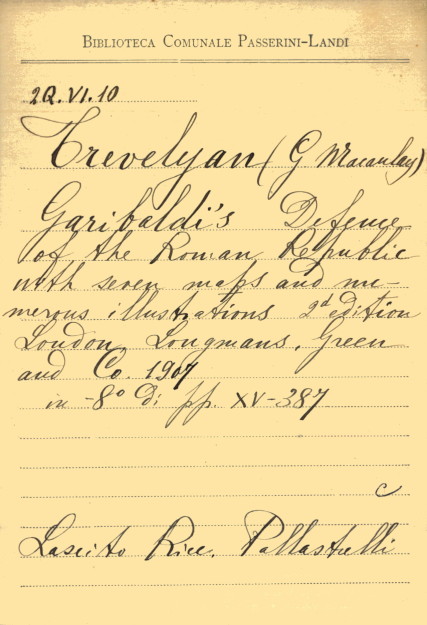 BIBLIOTECA COMUNALE PASSERINI-LANDI
2Q.VI.10
Trevelyan (G Macaulay)
Garibaldi's Defence
of the Roman Republic
with seven maps and nu-
merous illustrations 2d edition
London, Longmans, Green
and Co. 1907
in -8° di pp. XV-387
c
Lascito Ricc. Pallastrelli